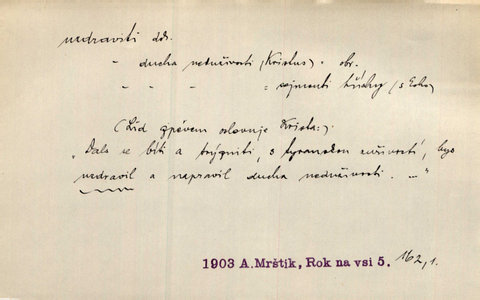 uzdraviti dok.
- ducha neduživosti (Kristus) . obr.
- - - = sejmouti hříchy (s koho)
(Lid zpěvem oslovuje Krista:)
„Dals se bíti a trýzniti, s tyranskou zuřivostí, bys
uzdravil a napravil ducha neduživosti. ..."
1903 A. Mrštík, Rok na vsi 5. 162,1.